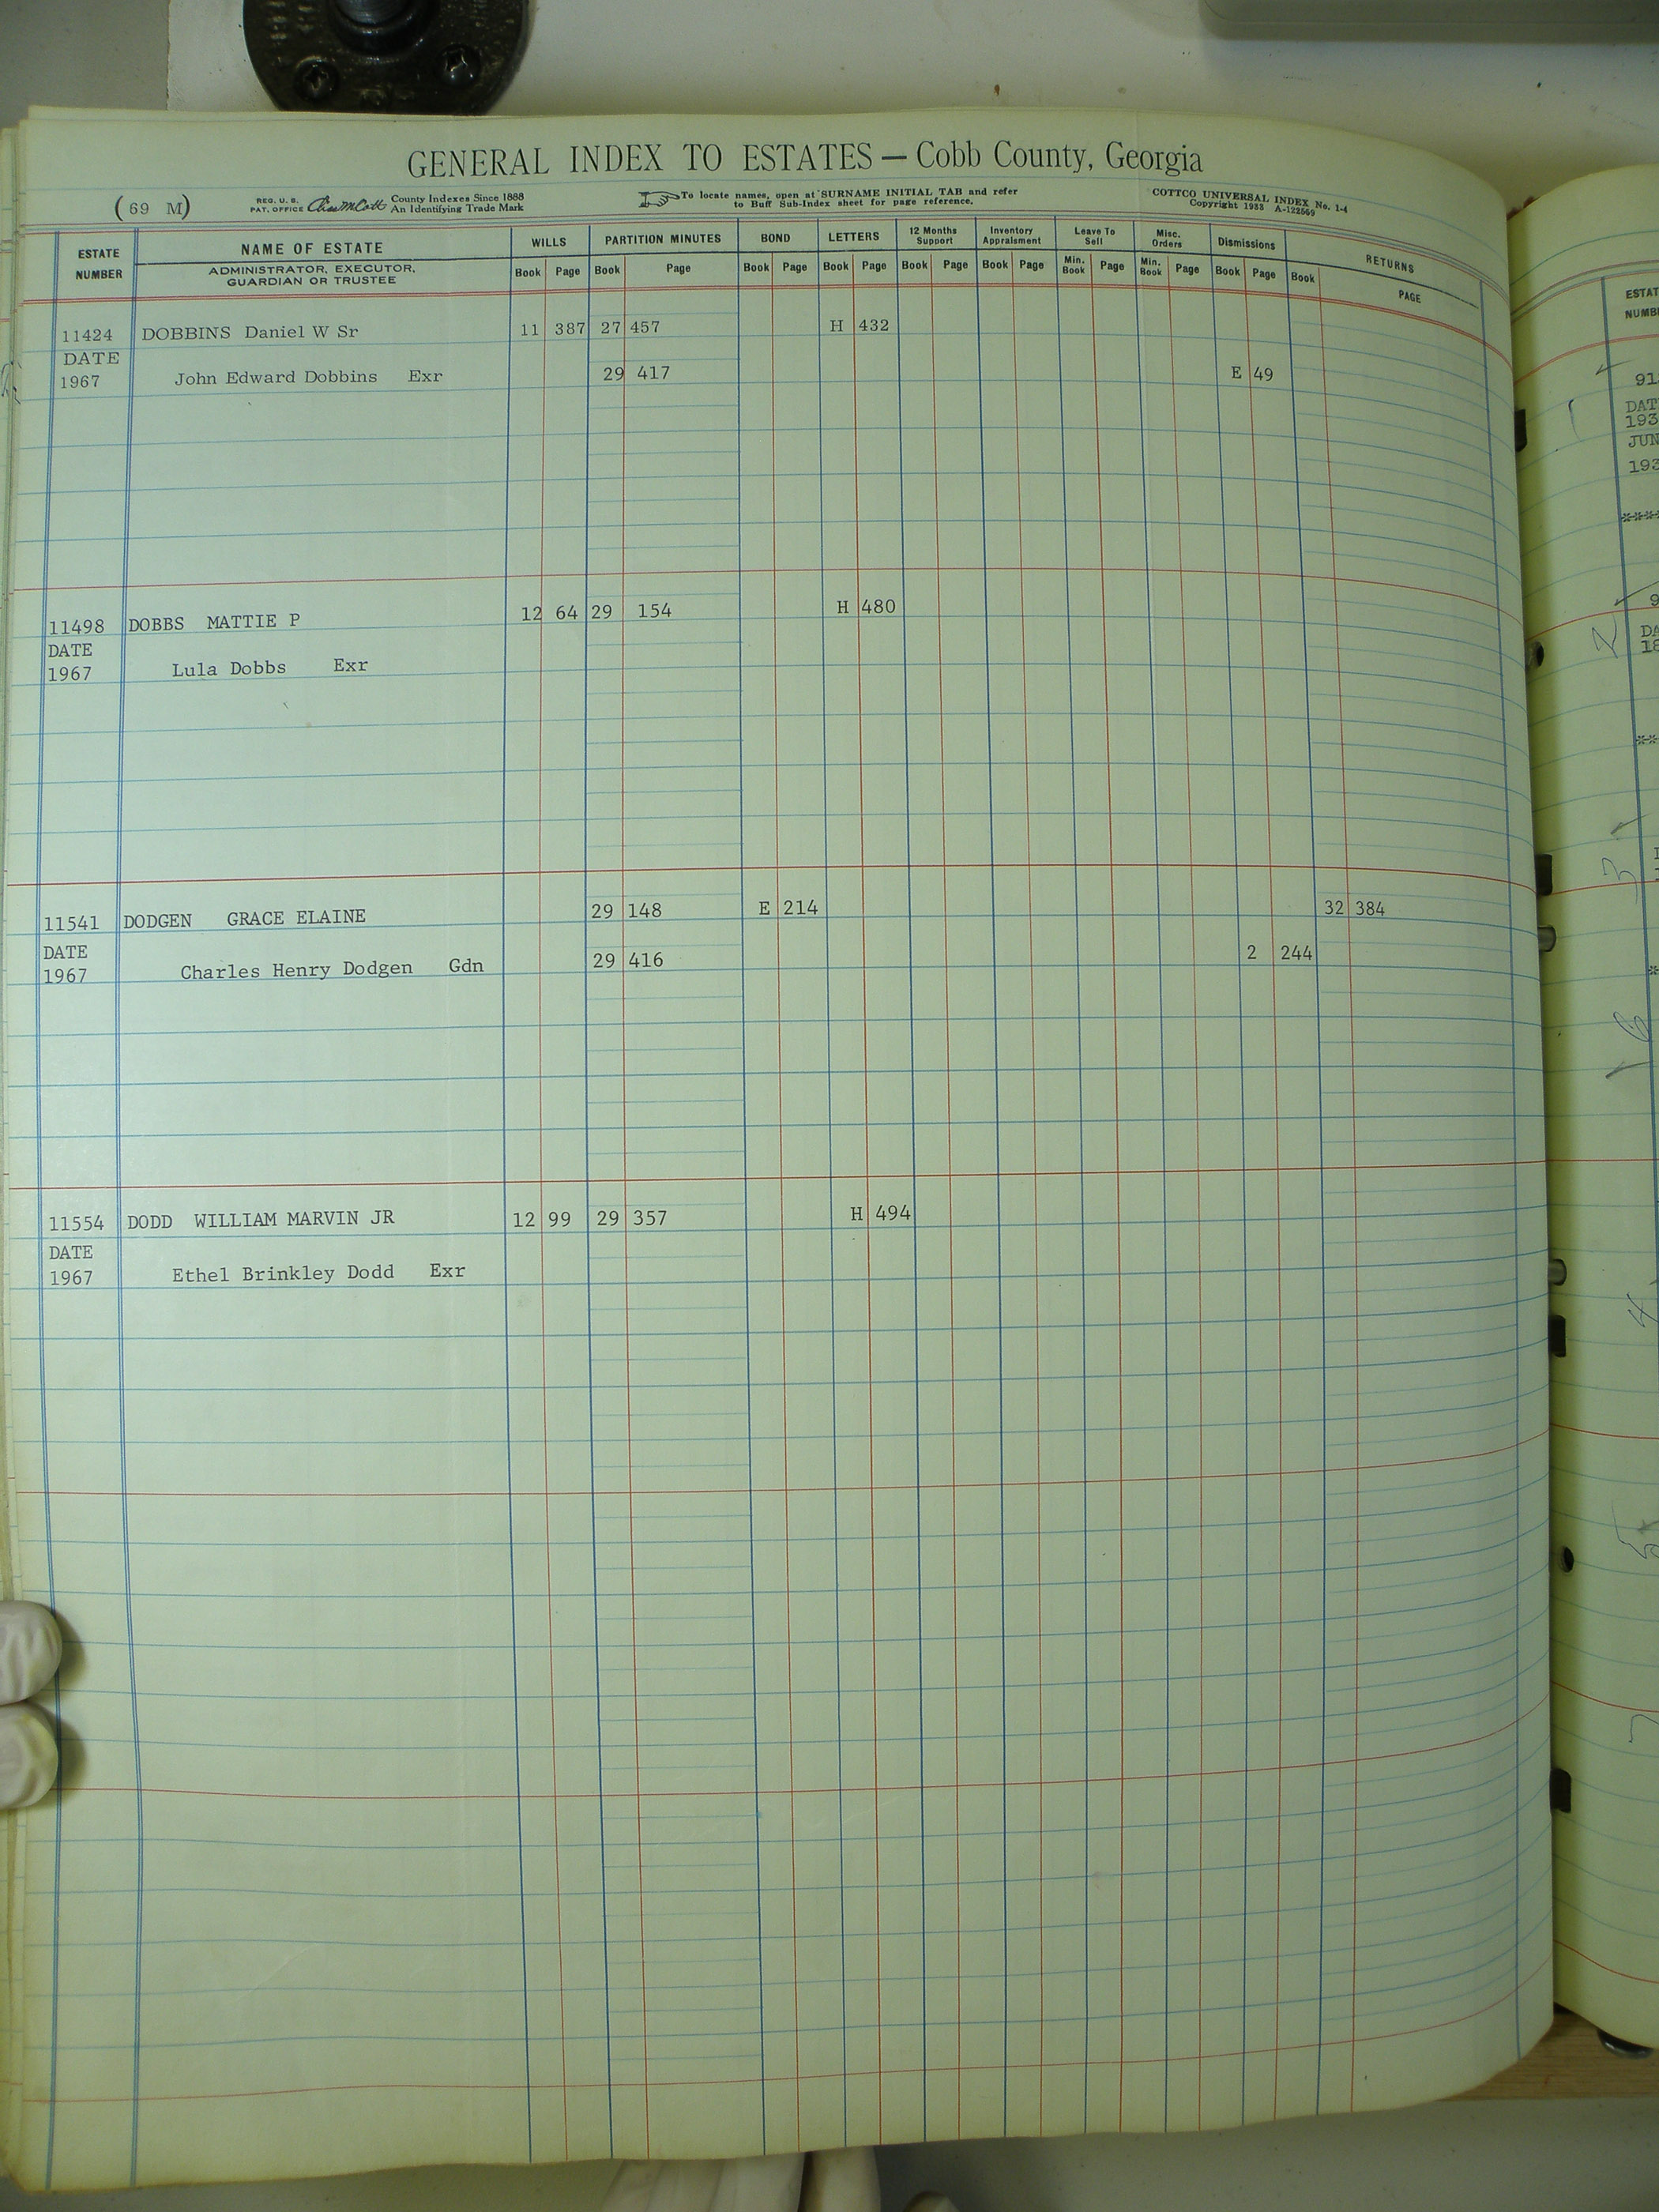 GENERAL INDEX TO ESTATES — Cobb County, Georgia
(69 M) REG. U. S. PAT. OFFICE County Indexes Since 1888 An Identifying Trade Mark
To locate names, open at SURNAME INITIAL TAB and refer to Buff Sub-Index sheet for page reference.
COTTCO UNIVERSAL INDEX No. 1-4
Copyright 1933 A-122569
ESTATE NUMBER NAME OF ESTATE WILLS PARTITION MINUTES BOND LETTERS 12 Months Support Inventory Appraisment Leave To Sell Misc. Orders Dismissions RETURNS
ADMINISTRATOR, EXECUTOR, GUARDIAN OR TRUSTEE Book Page Book Page Book Page Book Page Book Page Book Page Min. Book Page Min. Book Page Book Page Book PAGE
11424 DOBBINS Daniel W Sr 11 387 27 457 H 432
DATE
1967 John Edward Dobbins Exr 29 417 E 49
11498 DOBBS MATTIE P 12 64 29 154 H 480
DATE
1967 Lula Dobbs Exr
11541 DODGEN GRACE ELAINE 29 148 E 214 32 384
DATE
1967 Charles Henry Dodgen Gdn 29 416 2 244
11554 DODD WILLIAM MARVIN JR 12 99 29 357 H 494
DATE
1967 Ethel Brinkley Dodd Exr